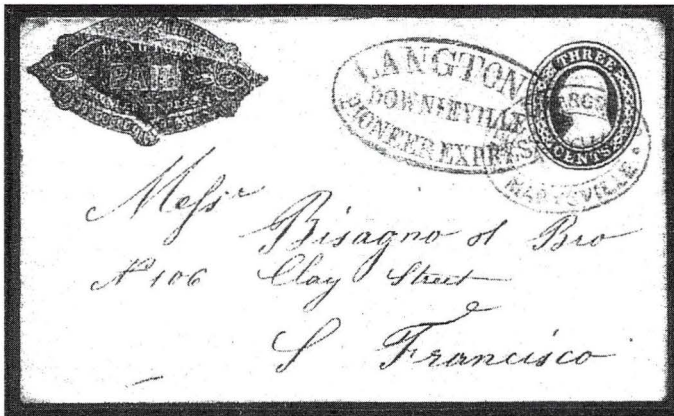 LANGTON'S
PAID
LANGTON
DOWNIEVILLE
PIONEER EXPRESS
THREE
CENTS
ARGO
MARYSVILLE
Messr
Bisagno & Bro
No 106 Clay Street
S Francisco